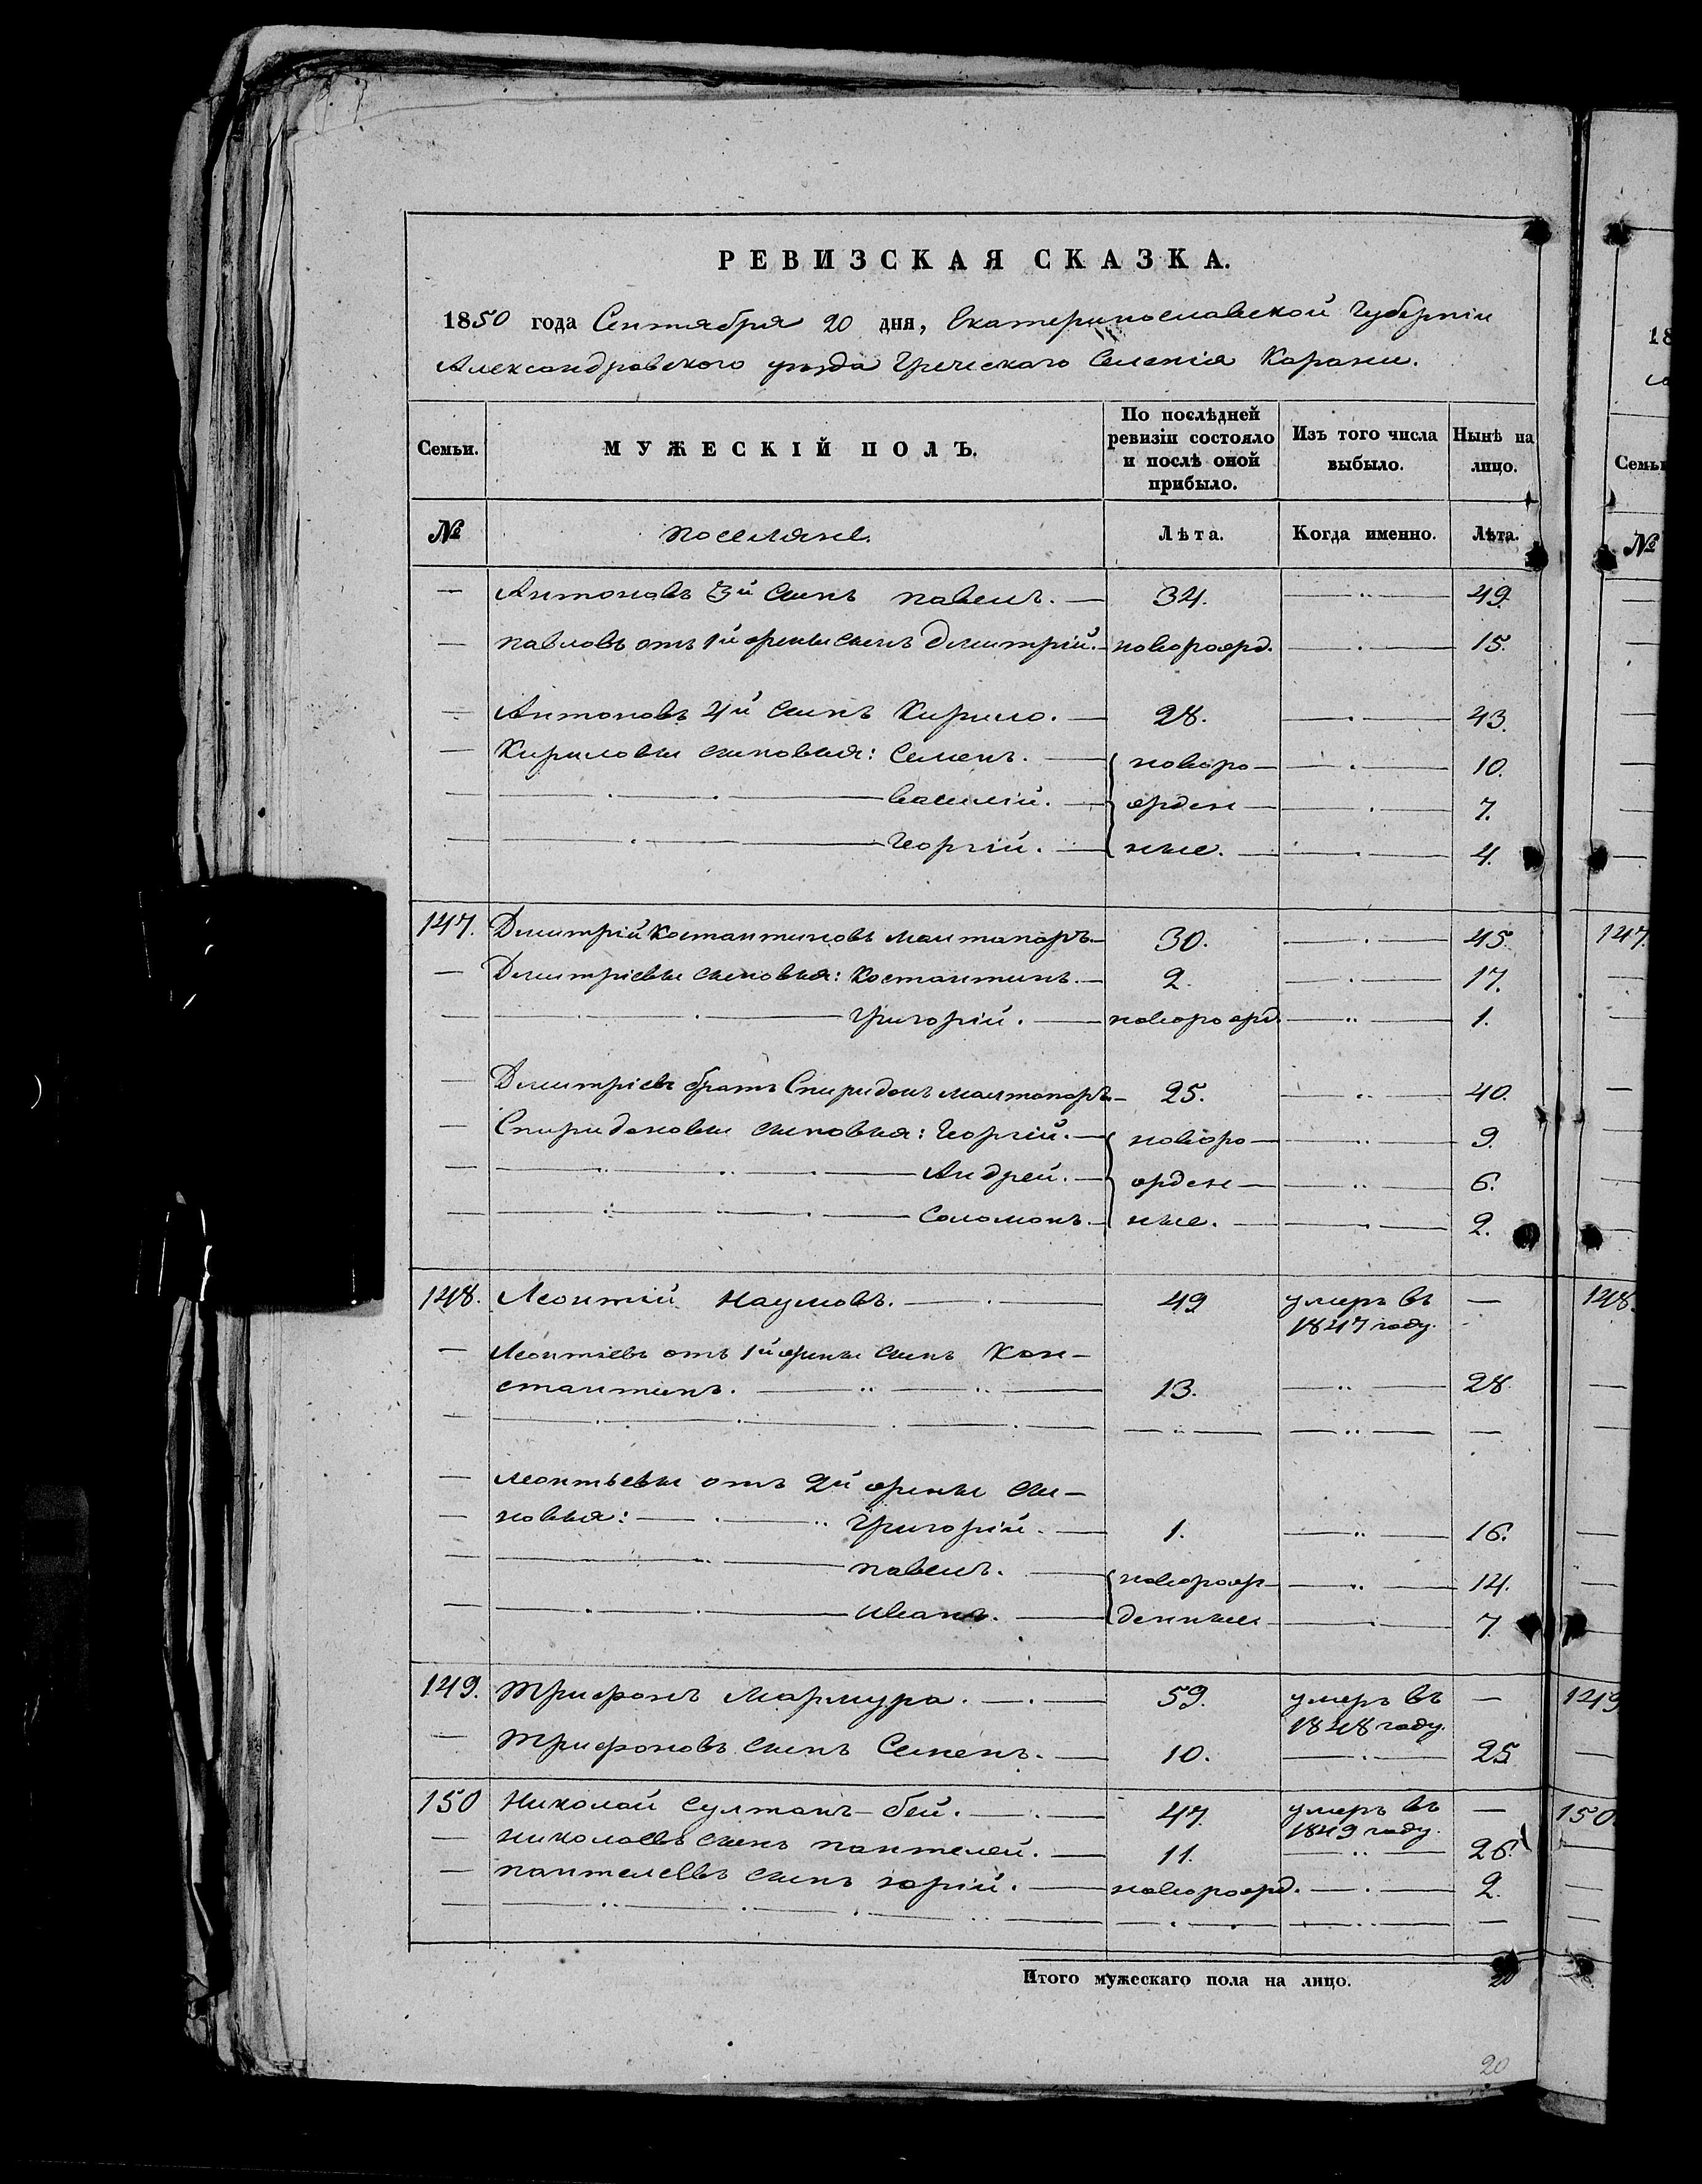 РЕВИЗСКАЯ СКАЗКА.
1850 года Сентября 20 дня, Екатеринославской Губернiи
Александровского уезда Греческаго Селенiя Карани.
Семьи. МУЖЕСКIЙ ПОЛЪ. По послѣдней ревизiи состояло и послѣ оной прибыло. Изъ того числа выбыло. Нынѣ на лицо.
№ Поселяне. Лѣта. Когда именно. Лѣта.
— Антоновъ 3й сынъ Павелъ. — 34. — 49.
— Павловъ отъ 1й жены сынъ Дмитрiй. — новорожд. — 15.
— Антоновъ 4й сынъ Кирило. — 28. — 43.
— Кириловы сыновья: Семенъ. — новоро — 10.
— Василiй. — жден — 7.
— Георгiй. — ные. — 4.
147. Дмитрiй Костантиновъ — 30. — 45.
— Дмитрiевы сыновья: Костантинъ. — 2. — 17.
— Григорiй. — новорожд. — 1.
— Дмитрiевъ братъ Спиридонъ — 25. — 40.
— Спиридоновы сыновья: Георгiй. — новоро — 9.
— Андрей. — жден — 6.
— Соломонъ. — ные. — 2.
148. Леонтiй Наумовъ. — 49 умеръ въ —
1847 году.
— Леонтiевъ отъ 1й жены сынъ Кон-
стантинъ. — 13. — 28.
— Леонтьевы отъ 2й жены сы-
— новья: — Григорiй. — 1. — 16.
— Павелъ. — новорож — 14.
— Иванъ. — денные — 7.
149. Трифонъ Мармура. — 59. умеръ въ —
1848 году.
— Трифоновъ сынъ Семенъ. — 10. — 25.
150 Николай Султанъ-бей. — 47. умеръ въ —
1849 году.
— Николаевъ сынъ Пантелей. — 11. — 26.
— Пантелеевъ сынъ Юрiй. — новорожд. — 2.
Итого мужескаго пола на лицо. 20
20
18
Семьи
№
147.
148.
149
150.